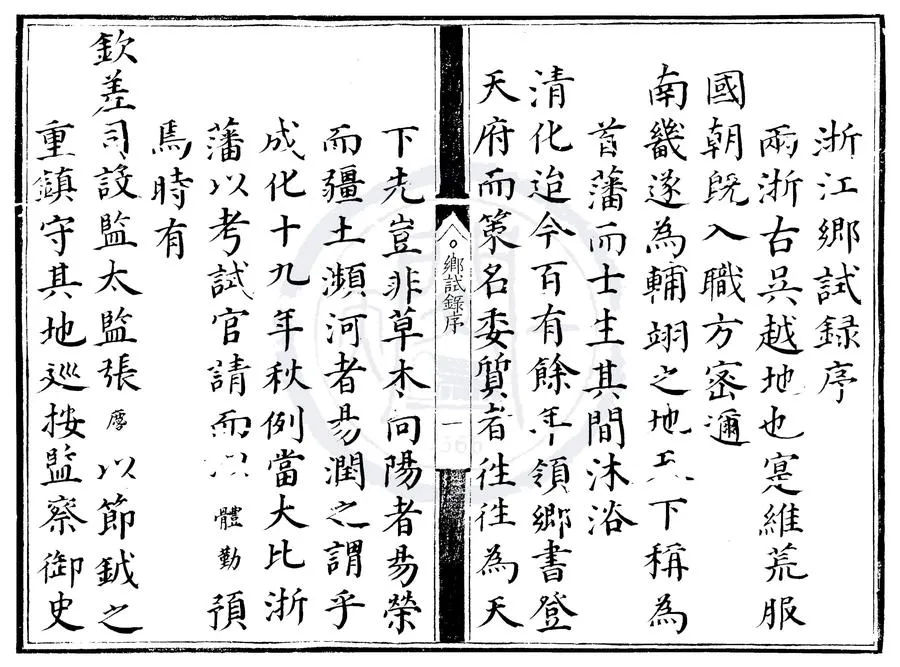 浙江鄉試録序
兩浙古吳越地也寔維荒服
國朝旣入職方密邇
南畿遂為輔翊之地天下稱為
首藩而士生其間沐浴
清化迨今百有餘年領鄉書登
天府而策名委質者往往為天
鄉試錄序
一
下先豈非草木向陽者易榮
而疆土瀕河者易潤之謂乎
成化十九年秋例當大比浙
藩以考試官請而以體勤預
焉時有
欽差司設監太監張慶以節鉞之
重鎮守其地巡按監察御史